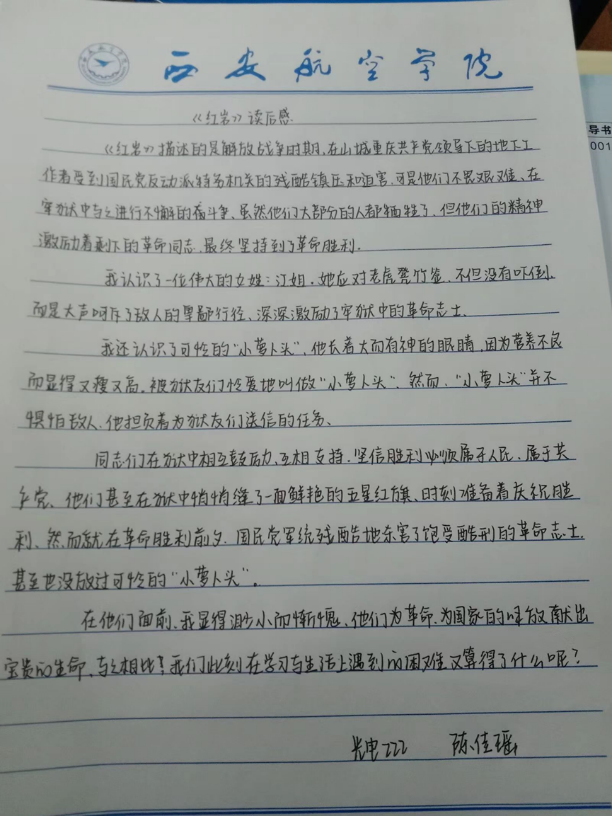 西安航空学院
导书
001
《红岩》读后感
《红岩》描述的是解放战争时期,在山城重庆共产党领导下的地下工
作者受到国民党反动派特务机关的残酷镇压和迫害,可是他们不畏艰难、在
牢狱中与之进行不懈的奋斗争,虽然他们大部分的人都牺牲了,但他们的精神
激励着剩下的革命同志,最终坚持到了革命胜利.
我认识了一位伟大的女姓:江姐,她应对老虎凳竹签,不但没有吓倒,
而是大声呵斥了敌人的卑鄙行径、深深激励了牢狱中的革命志士.
我还认识了可怜的“小萝卜头”,他长着大而有神的眼睛,因为营养不良
而显得又瘦又高,被狱友们怜爱地叫做“小萝卜头”.然而,“小萝卜头”并不
惧怕敌人.他担负着为狱友们送信的任务、
同志们在狱中相互鼓励、互相支持.坚信胜利必须属于人民,属于共
产党、他们甚至在狱中悄悄缝了一面鲜艳的五星红旗、时刻准备着庆祝胜
利、然而就在革命胜利前夕.国民党军统残酷地杀害了饱受酷刑的革命志士.
甚至也没放过可怜的“小萝卜头”。
在他们面前、我显得渺小而惭愧,他们为革命.为国家的解放献出
宝贵的生命、与之相比!我们此刻在学习与生活上遇到的困难又算得了什么呢?
光电222 陈佳瑶